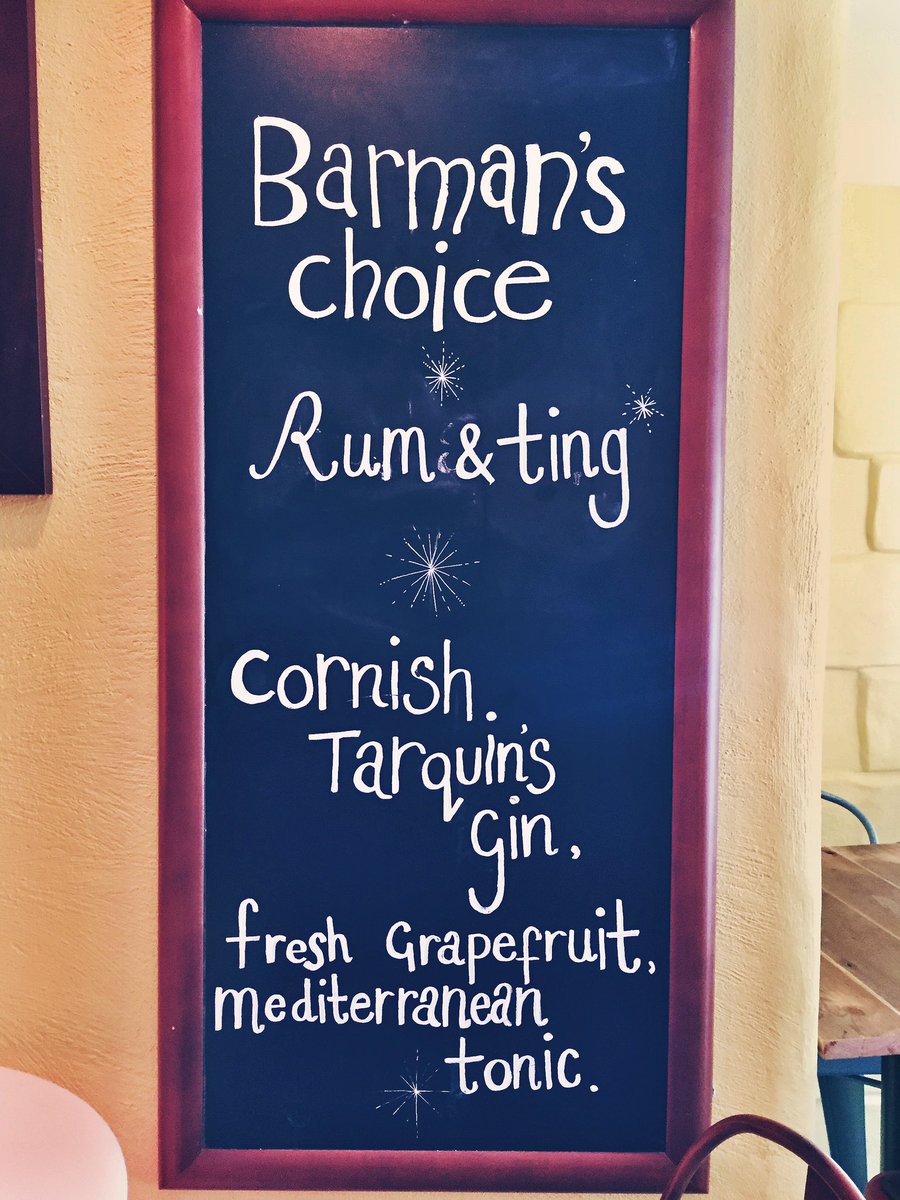 Barman's
choice
Rum & ting
Cornish.
Tarquin's
Gin,
fresh Grapefruit,
mediterranean
tonic.